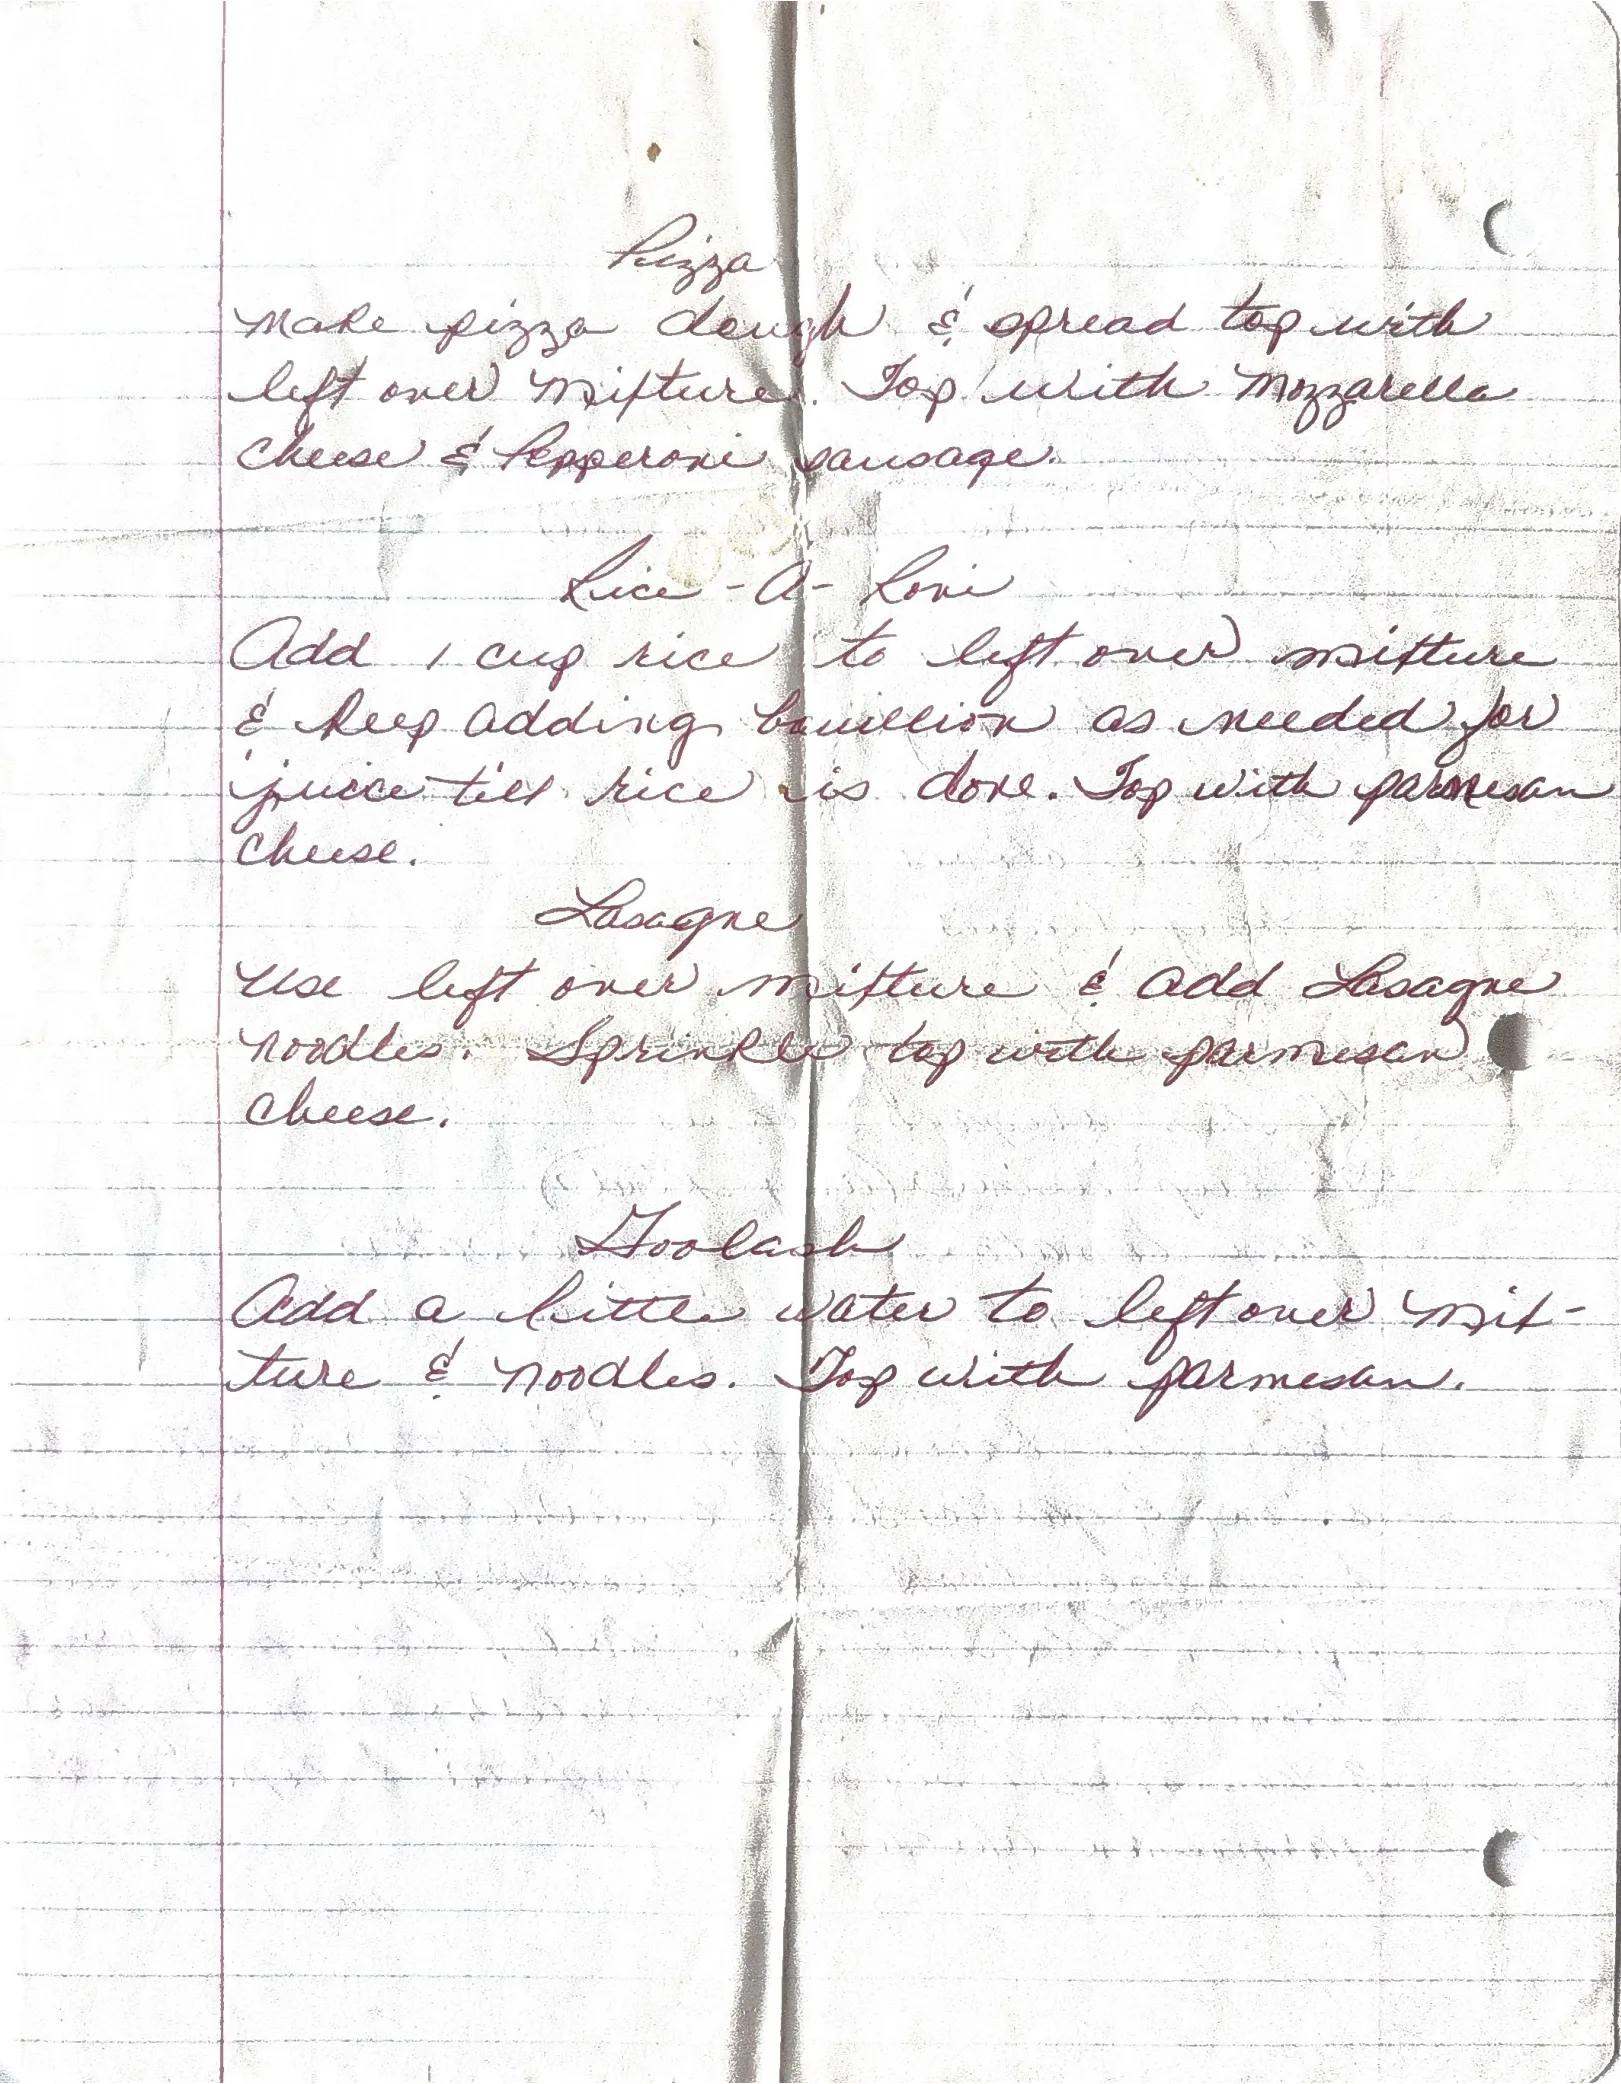 Pizza
Make pizza dough & spread top with
left over mixture. Top with Mozzarella
cheese & Pepperoni sausage.
Rice-A-Roni
Add 1 cup rice to left over mixture
& keep adding bouillion as needed for
juice till rice is done. Top with parmesan
cheese.
Lasagne
Use left over mixture & add Lasagne
noodles. Sprinkle top with parmesan
cheese.
Goolash
Add a little water to left over mix-
ture & noodles. Top with parmesan.